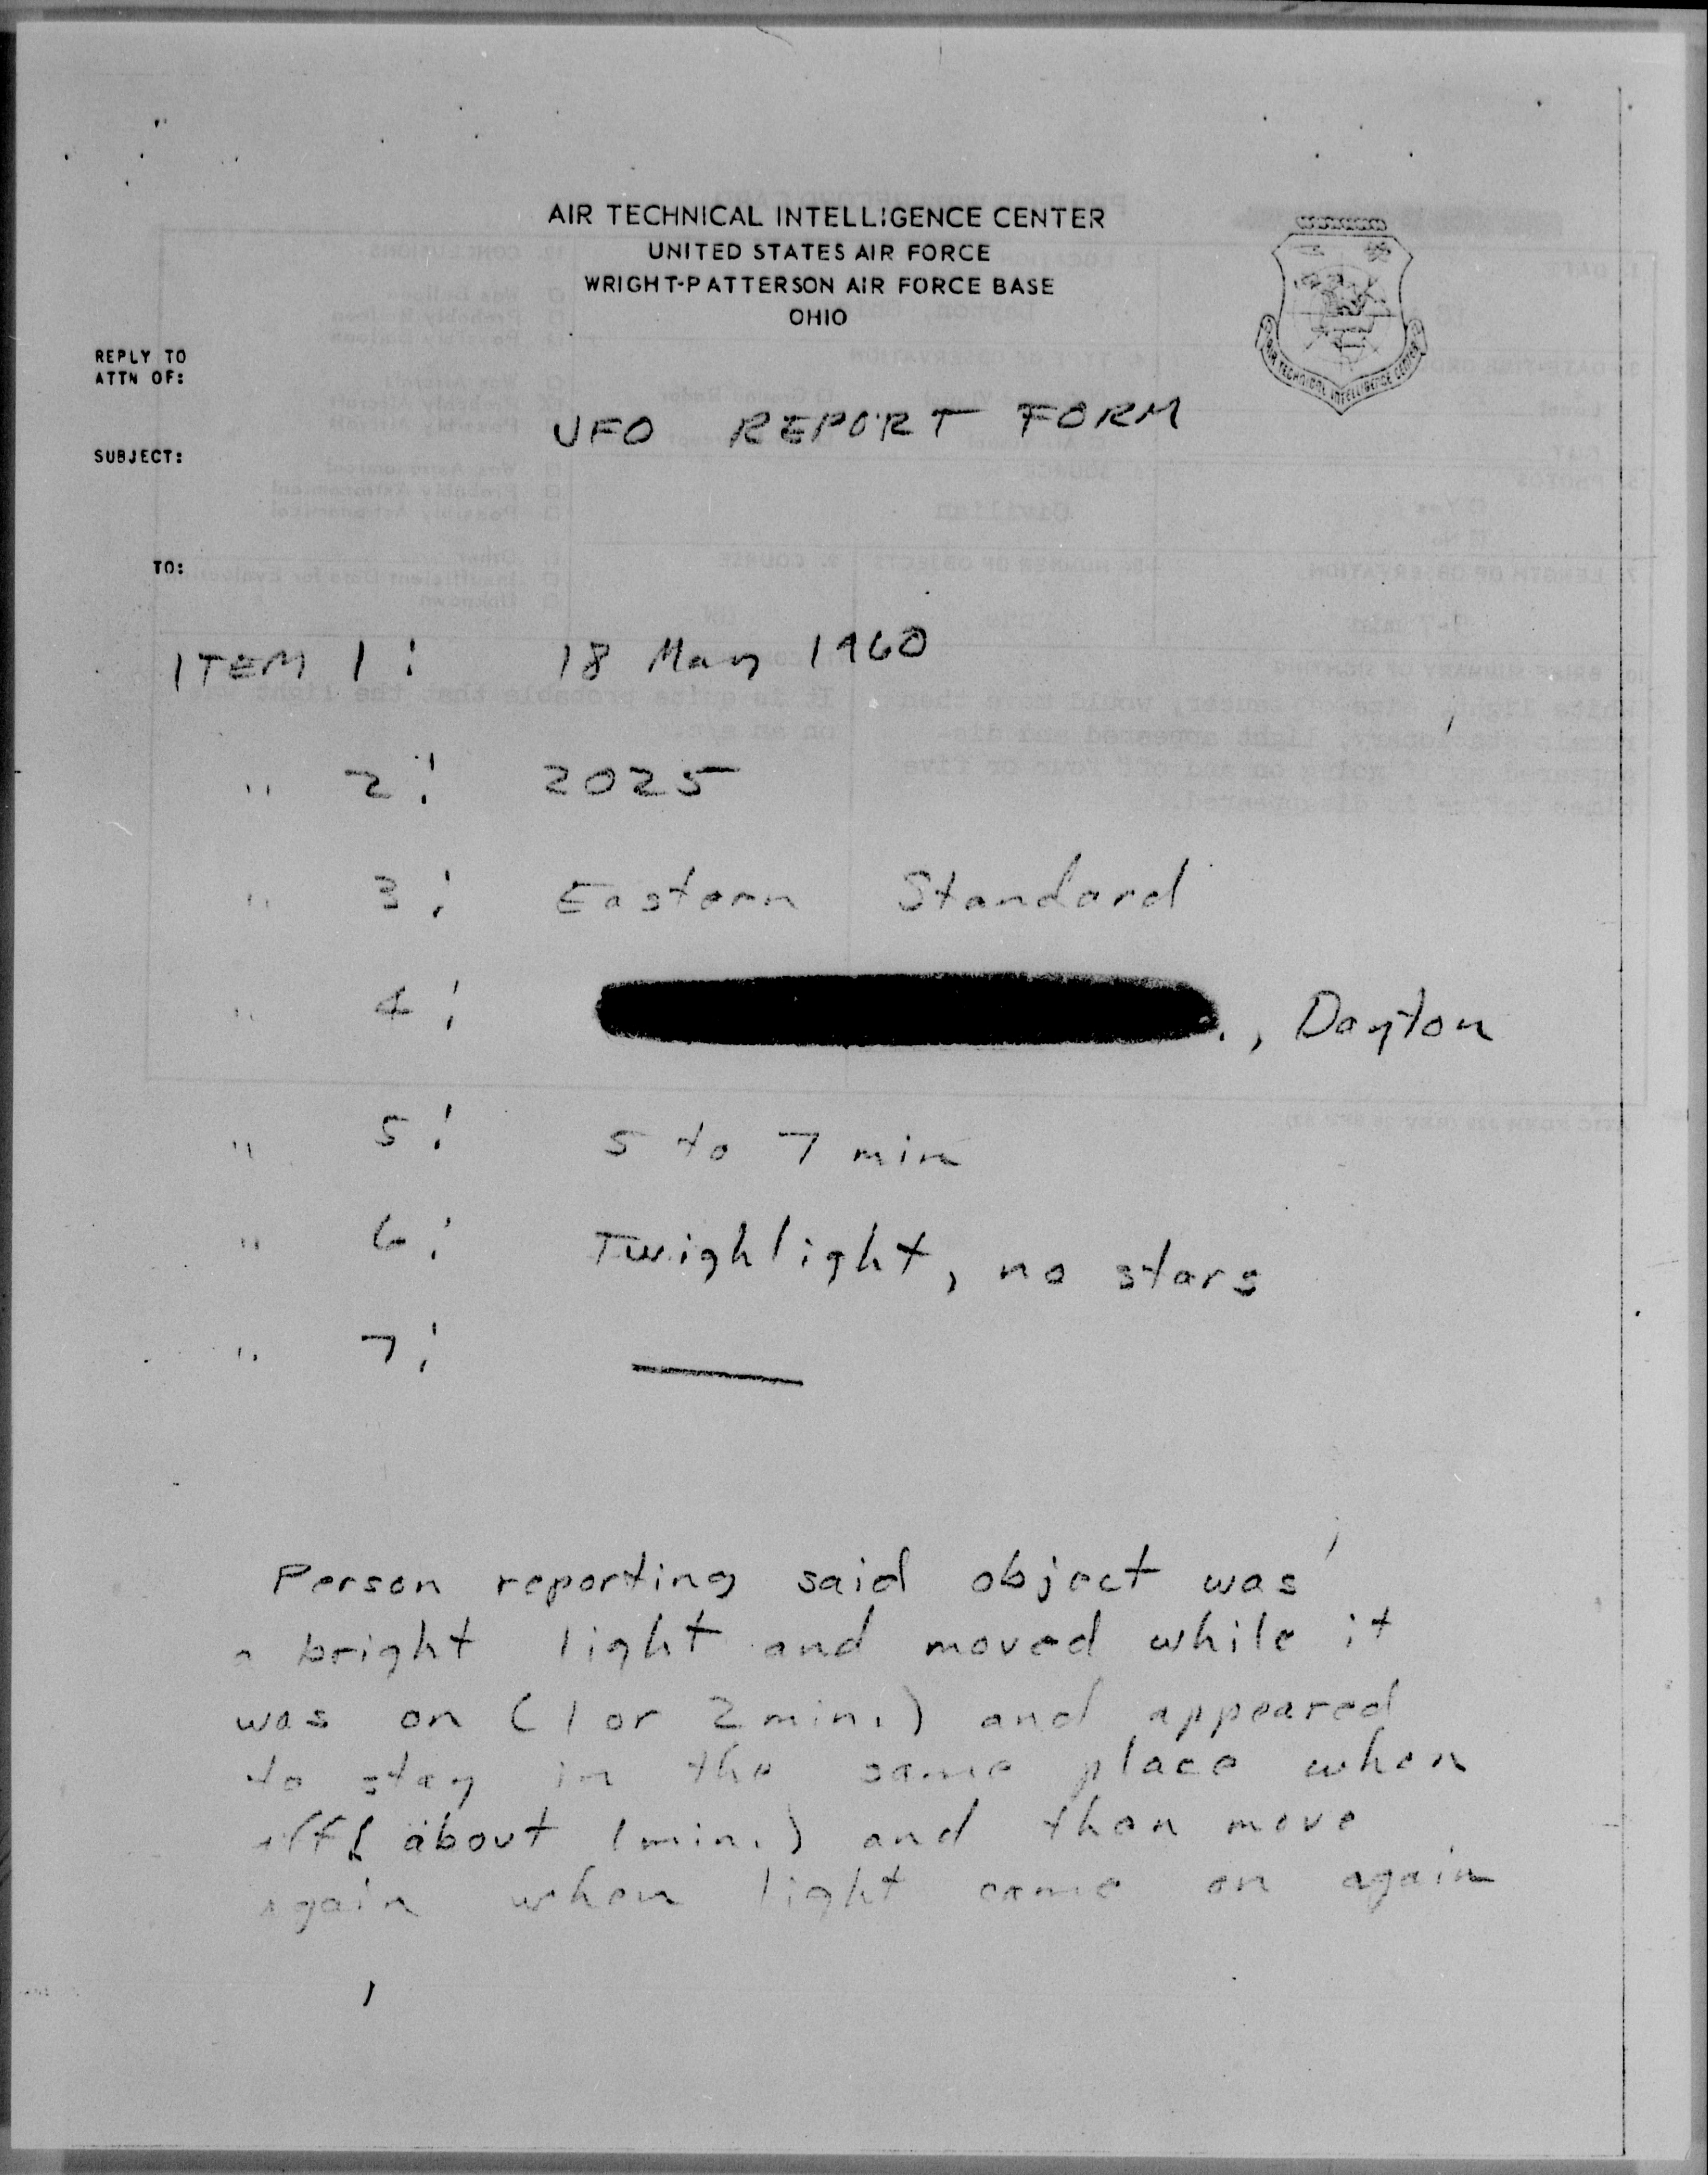 AIR TECHNICAL INTELLIGENCE CENTER
UNITED STATES AIR FORCE
WRIGHT-PATTERSON AIR FORCE BASE
OHIO
AIR TECHNICAL INTELLIGENCE CENTER
REPLY TO
ATTN OF:
UFO REPORT FORM
SUBJECT:
TO:
ITEM 1: 18 May 1960
" 2: 2025
" 3: Eastern Standard
" 4: ., Dayton
" 5: 5 to 7 min
" 6: Twighlight, no stars
" 7: —
Person reporting said object was
a bright light and moved while it
was on (1 or 2 min.) and appeared
to stay in the same place when
off (about 1 min.) and then move
again when light came on again